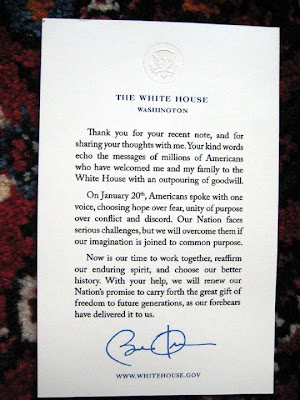 THE WHITE HOUSE
WASHINGTON
Thank you for your recent note, and for
sharing your thoughts with me. Your kind words
echo the messages of millions of Americans
who have welcomed me and my family to the
White House with an outpouring of goodwill.
On January 20th, Americans spoke with one
voice, choosing hope over fear, unity of purpose
over conflict and discord. Our Nation faces
serious challenges, but we will overcome them if
our imagination is joined to common purpose.
Now is our time to work together, reaffirm
our enduring spirit, and choose our better
history. With your help, we will renew our
Nation's promise to carry forth the great gift of
freedom to future generations, as our forebears
have delivered it to us.
WWW.WHITEHOUSE.GOV